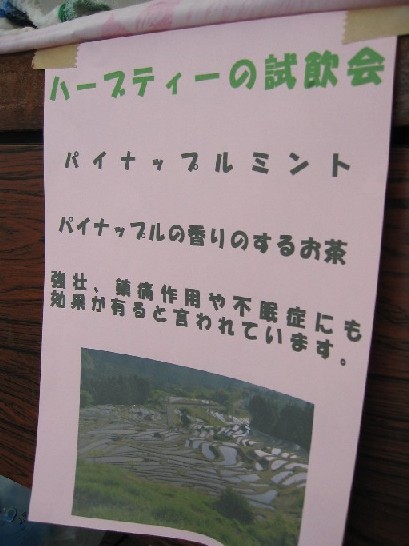 ハーブティーの試飲会
パイナップルミント
パイナップルの香りのするお茶
強壮、鎮痛作用や不眠症にも
効果が有ると言われています。